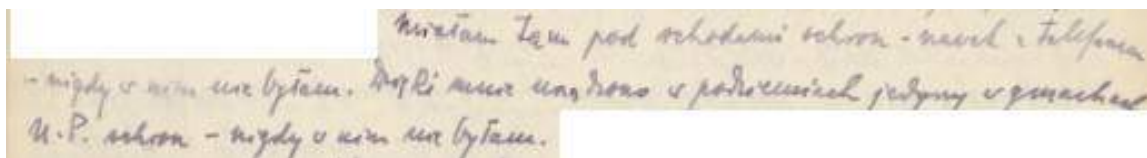 miałam tam pod schodami schron - nawet z telefonem
- nigdy w nim nie byłam. Dzięki mnie urządzono w podziemiach jedyny w gmachach
U.P. schron - nigdy w nim nie byłam.